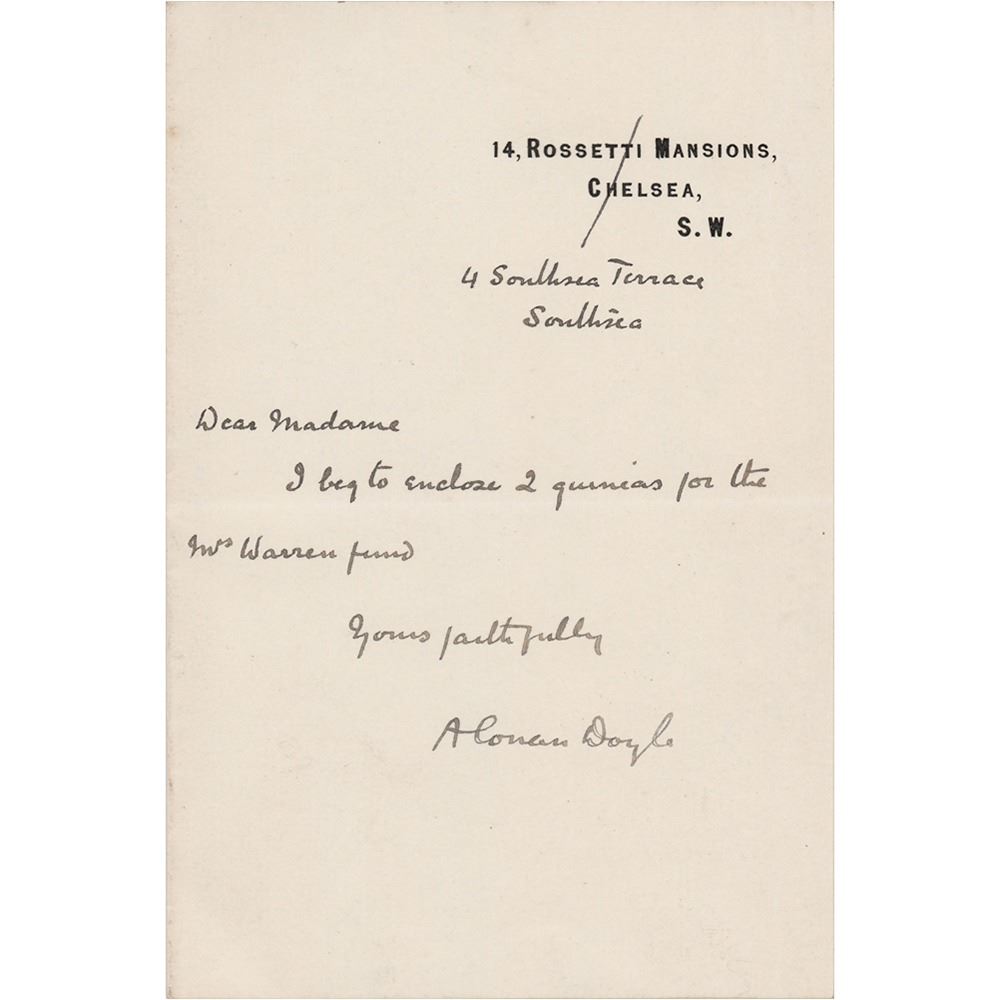 14, ROSSETTI MANSIONS,
CHELSEA,
S. W.
4 Southsea Terrace
Southsea
Dear Madame
I beg to enclose 2 guineas for the
Mrs Warren fund
Yours faithfully
A Conan Doyle